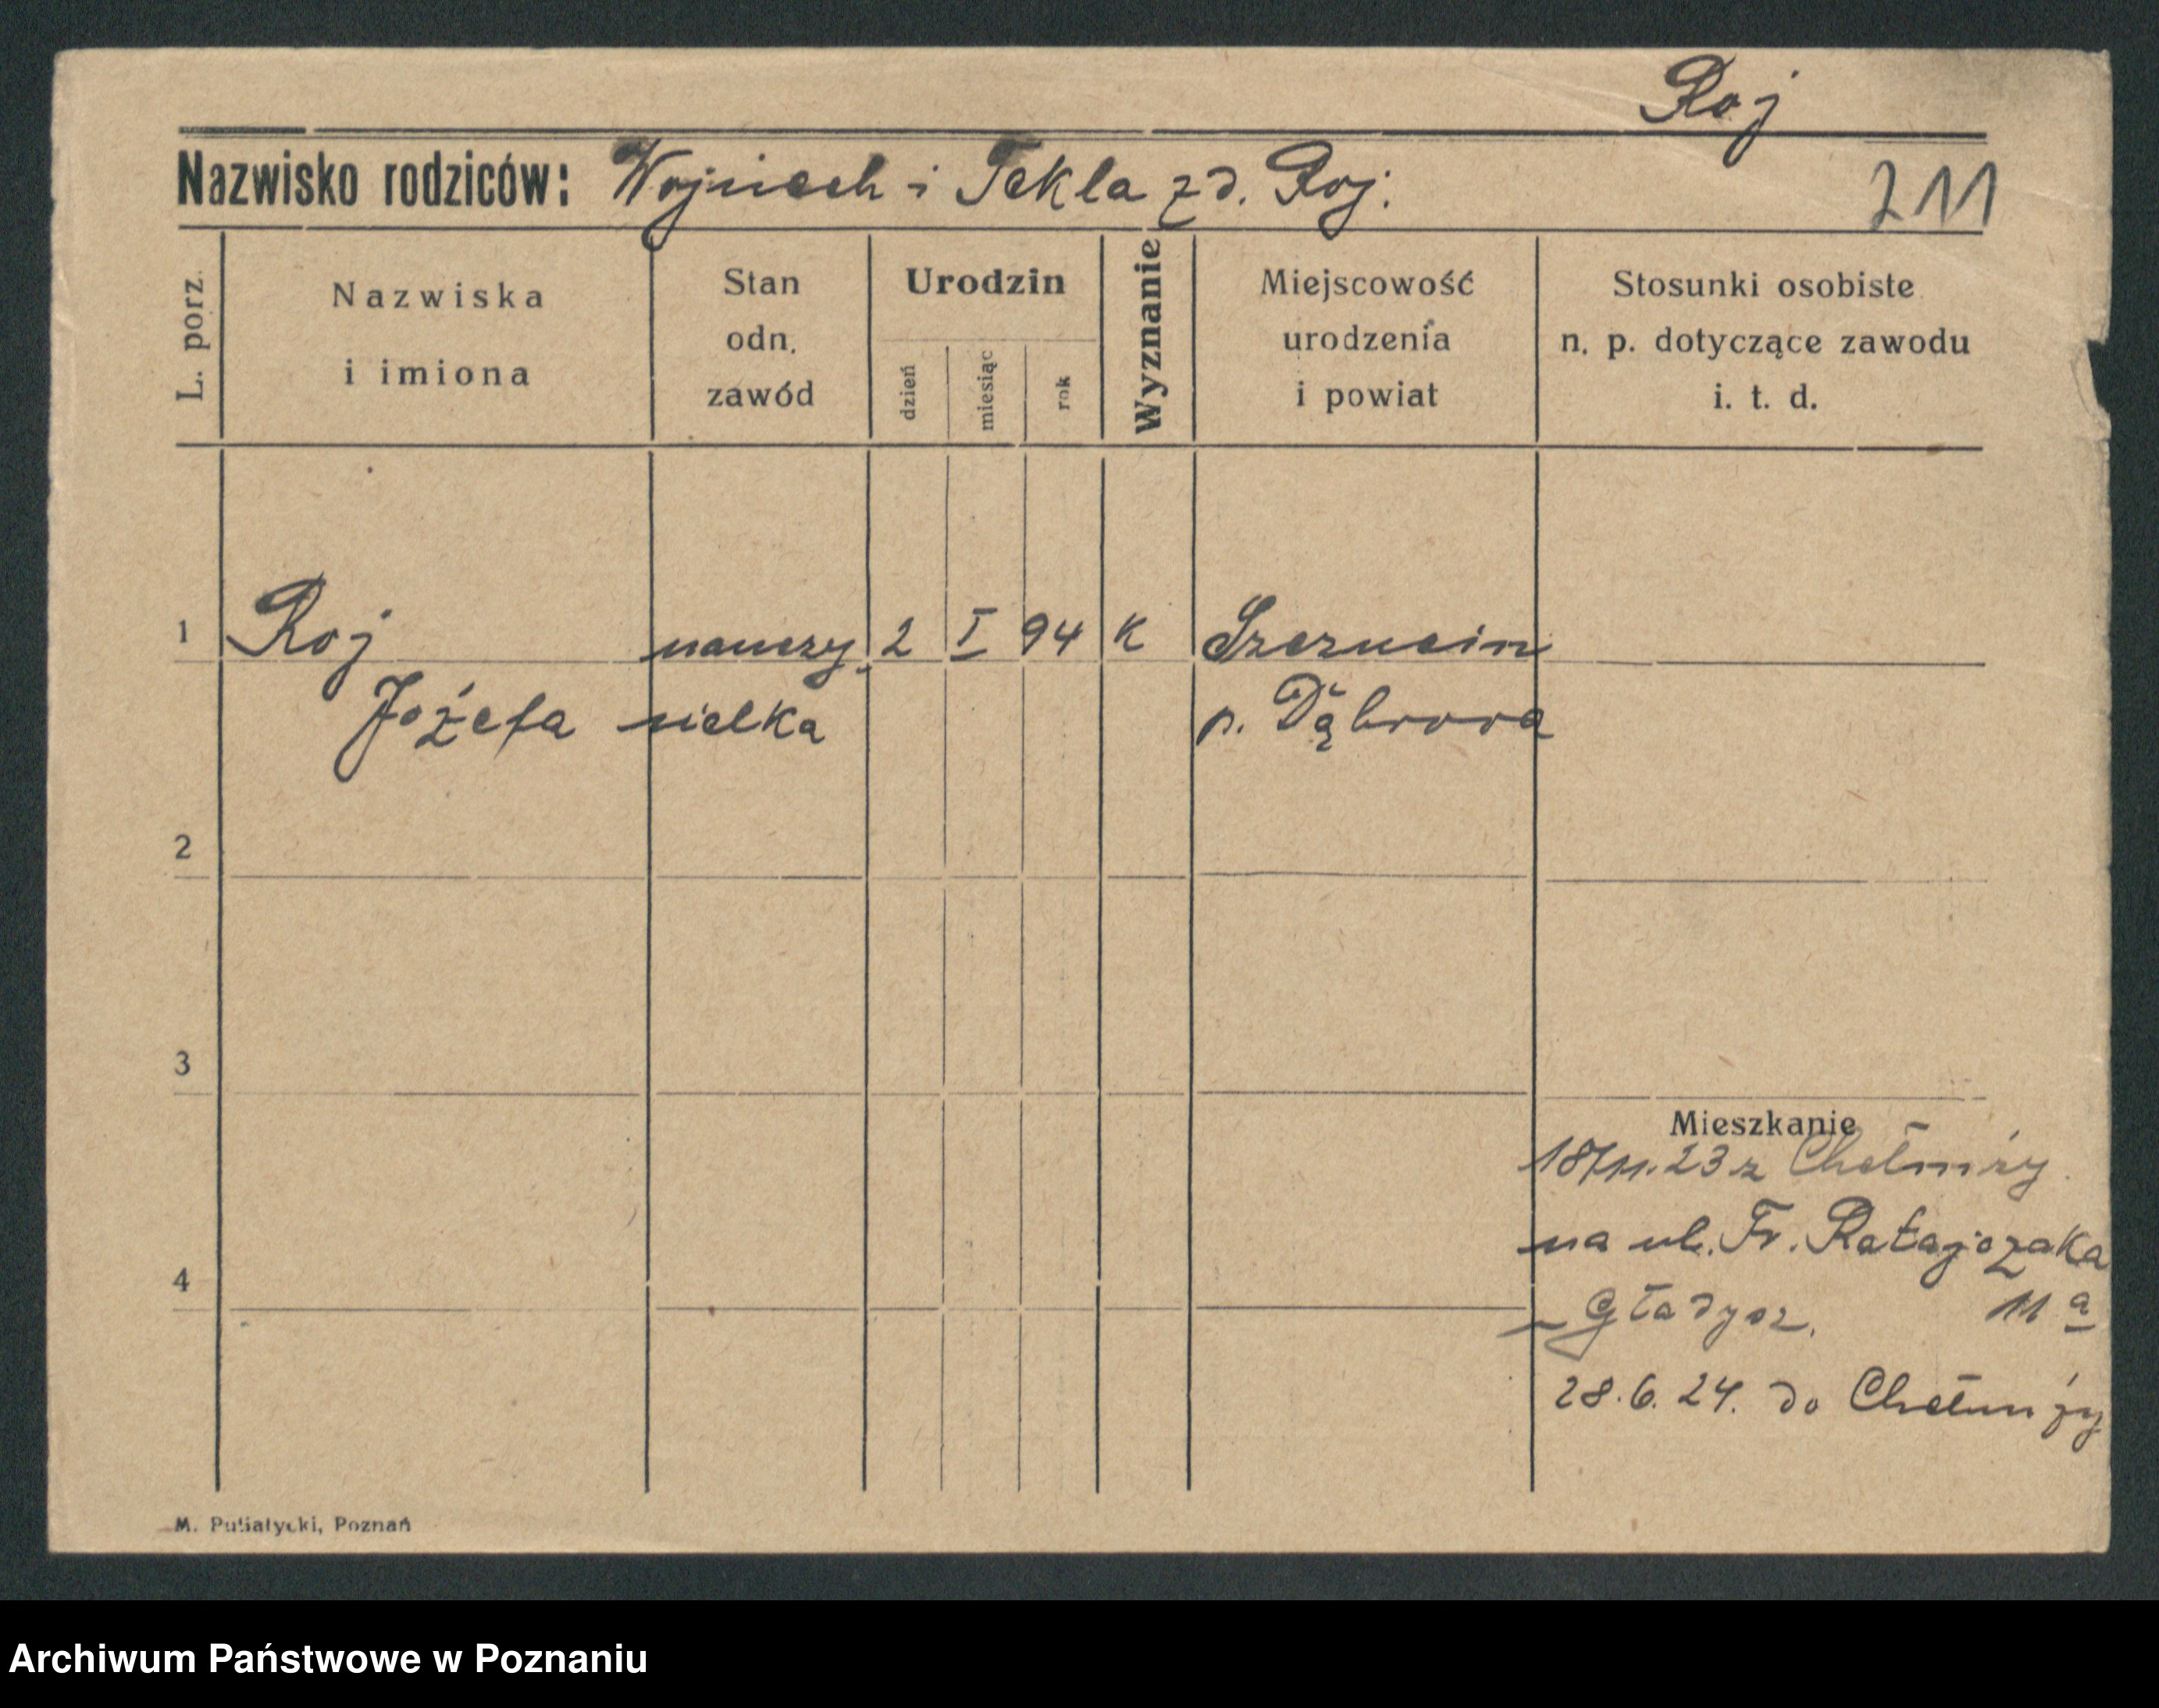 Roj
Nazwisko rodziców: Wojciech i Tekla zd. Roj.
211
L. porz.
Nazwiska
i imiona
Stan
odn.
zawód
Urodzin
dzień
miesiąc
rok
Wyznanie
Miejscowość
urodzenia
i powiat
Stosunki osobiste
n. p. dotyczące zawodu
i. t. d.
1 Roj nauczy 2 I 94 K Szczucin
Józefa cielka p. Dąbrowa
2
3
Mieszkanie
18/11.23 z Chełmży
na ul. Fr. Ratajczaka
4
Gładysz. 11 a
28.6.24. do Chełmży
M. Putiatycki, Poznań
Archiwum Państwowe w Poznaniu